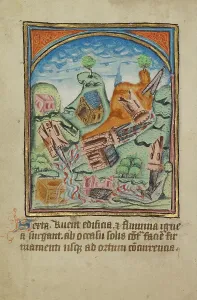 Sexta Ruent edificia, ⁊ flumina igne
a surgant. ab occasu solis cōt͛ faciē fir
mamenti usq̄ ad ortum cōcurrencia.